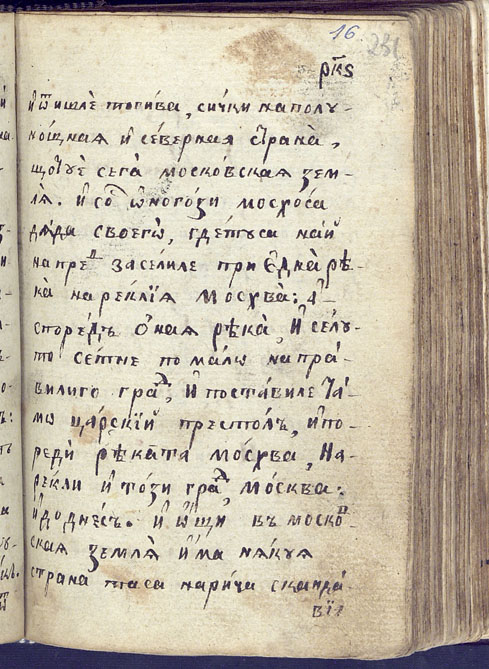 16
231
рк҃ѕ
и҆ ѿишле тогива, сички на полу-
нощная и҆ северная страна̀,
що҆ туе сега̀ московская зем-
лѧ̀. И҆ со ѡ҆ногози мосхоса
дѧда своегѡ, где тꙋса най
напреⷣ заселиле при е҆дна̀ рѣ-
ка̀ нареклїя Мосхва̀: а҆
споредъ ѻ҆ная рѣка̀, и҆ село-
то сетне по малѡ напра-
вилиго граⷣ, и҆ поставиле та-
мѡ царскїй престолъ, и҆ по-
реди рѣката мосхва, На-
рекли и҆ този граⷣ, москва:
и҆ до днесъ. и҆ ѡ҆щи въ моско̀ⷡ-
ская землѧ̀ и҆ма някуя
страна таса нарича сканда-
вїѧ